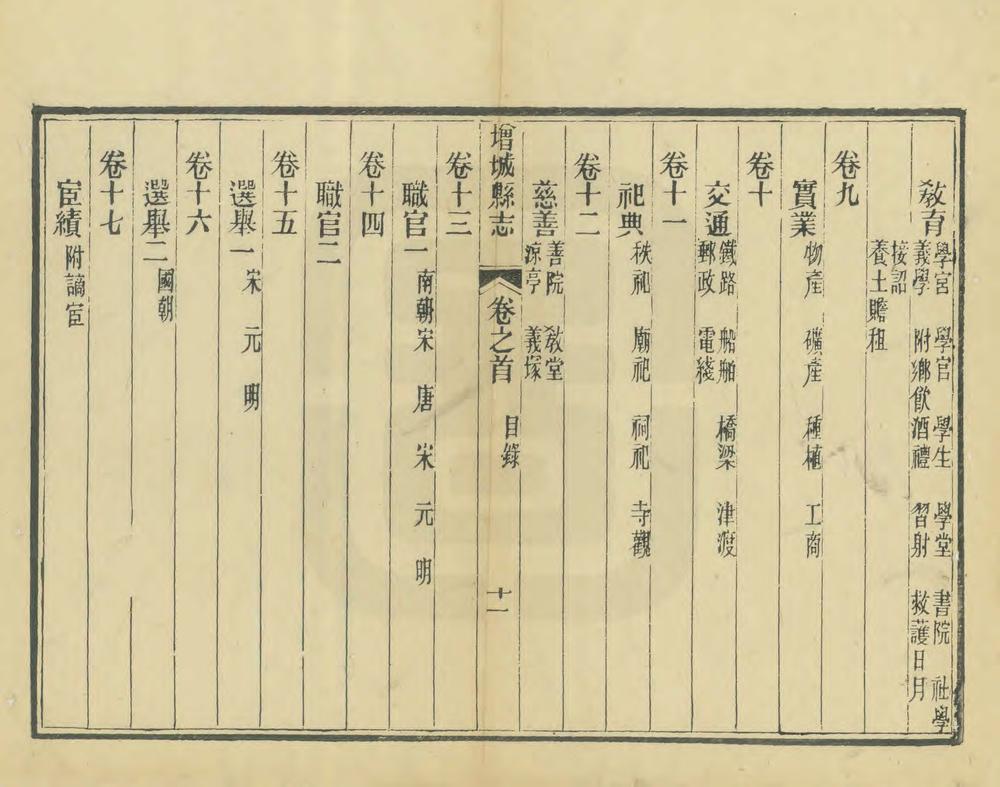 教育 學宮 學官 學生 學堂 書院 社學
義學 附鄉飲酒禮 習射 救護日月
接詔
養士贍租
卷九
實業 物產 礦產 種植 工商
卷十
交通 鐵路 船舶 橋梁 津渡
郵政 電綫
卷十一
祀典 秩祀 廟祀 祠祀 寺觀
卷十二
慈善 善院 教堂
涼亭 義塚
增城縣志 卷之首 目錄 十一
卷十三
職官一 南朝宋 唐 宋 元 明
卷十四
職官二
卷十五
選舉一 宋 元 明
卷十六
選舉二 國朝
卷十七
宦績 附謫宦